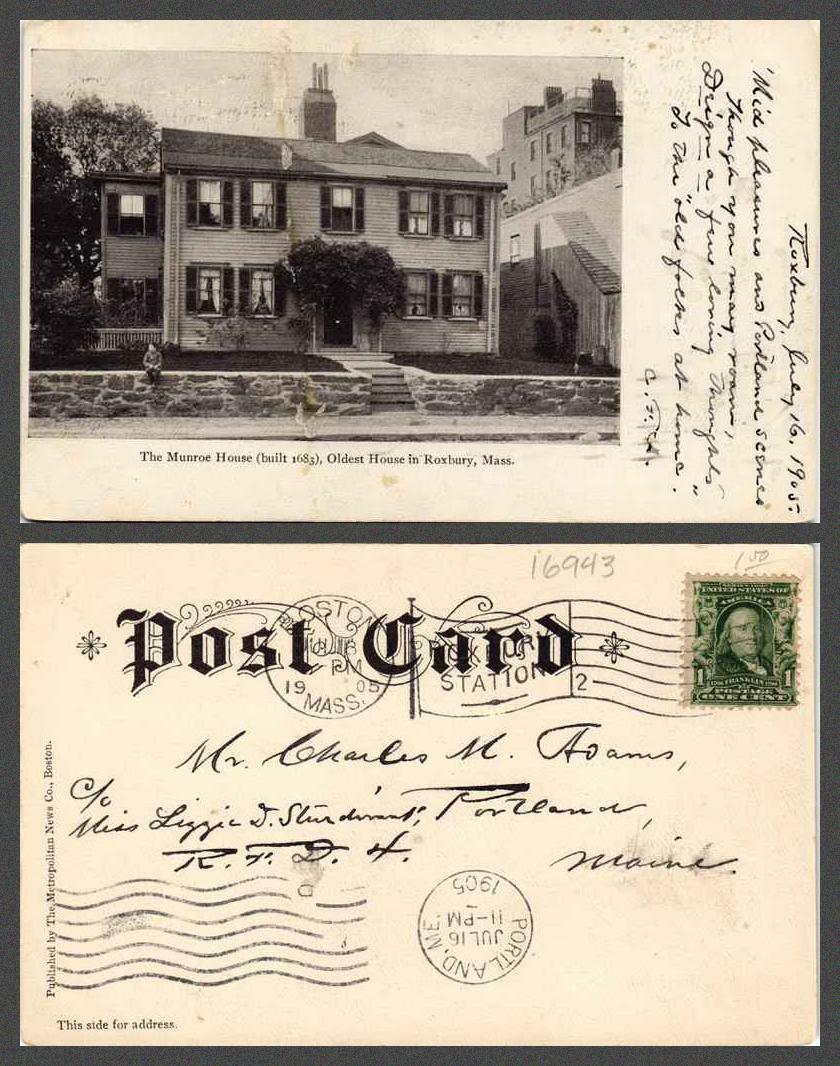 Roxbury, July 16, 1905.
'Mid pleasures and Portland scenes
Though you may roam,
Deign a few loving thoughts
To the "old folks at home."
The Munroe House (built 1683), Oldest House in Roxbury, Mass.
16943
1 50
Post Card
BOSTON
PM
19 05
MASS.
STATION
2
SERIES 1902
UNITED STATES OF
AMERICA
1 FRANKLIN 1
POSTAGE
ONE CENT
Mr. Charles M. Adams,
c/o
Miss Lizzie D. Sturdivant, Portland,
R. F. D. 4. Maine.
PORTLAND, ME.
JUL 16
11-PM
1905
Published by The Metropolitan News Co., Boston.
This side for address.